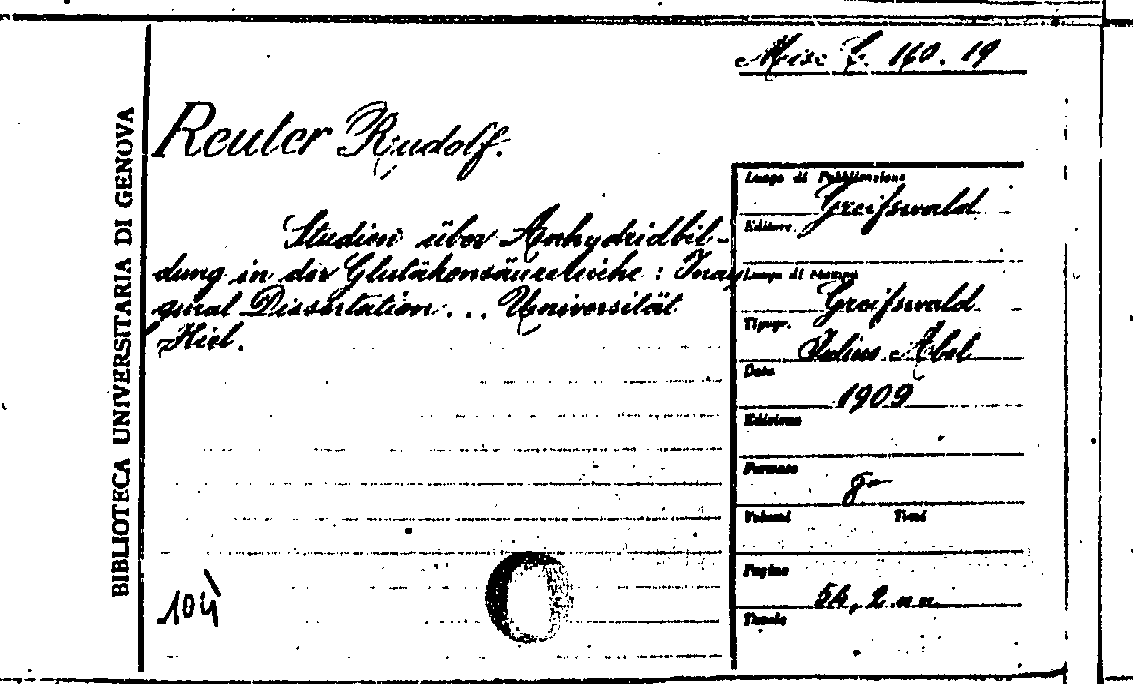 Misc C. 160. 19
BIBLIOTECA UNIVERSITARIA DI GENOVA
Reuter Rudolf.
Studien über Anhydridbil-
dung in der Glutakonsäurereihe: Inau
gural Dissertation... Universität
Kiel.
104
Luogo di Pubblicazione
Greifswald
Editore.
Luogo di Stampa
Greifswald
Tipogr.
Julius Abel
Data
1909
Edizione
Formato
8°
Volumi Tomi
Pagine
54, 2 nn.
Tavole